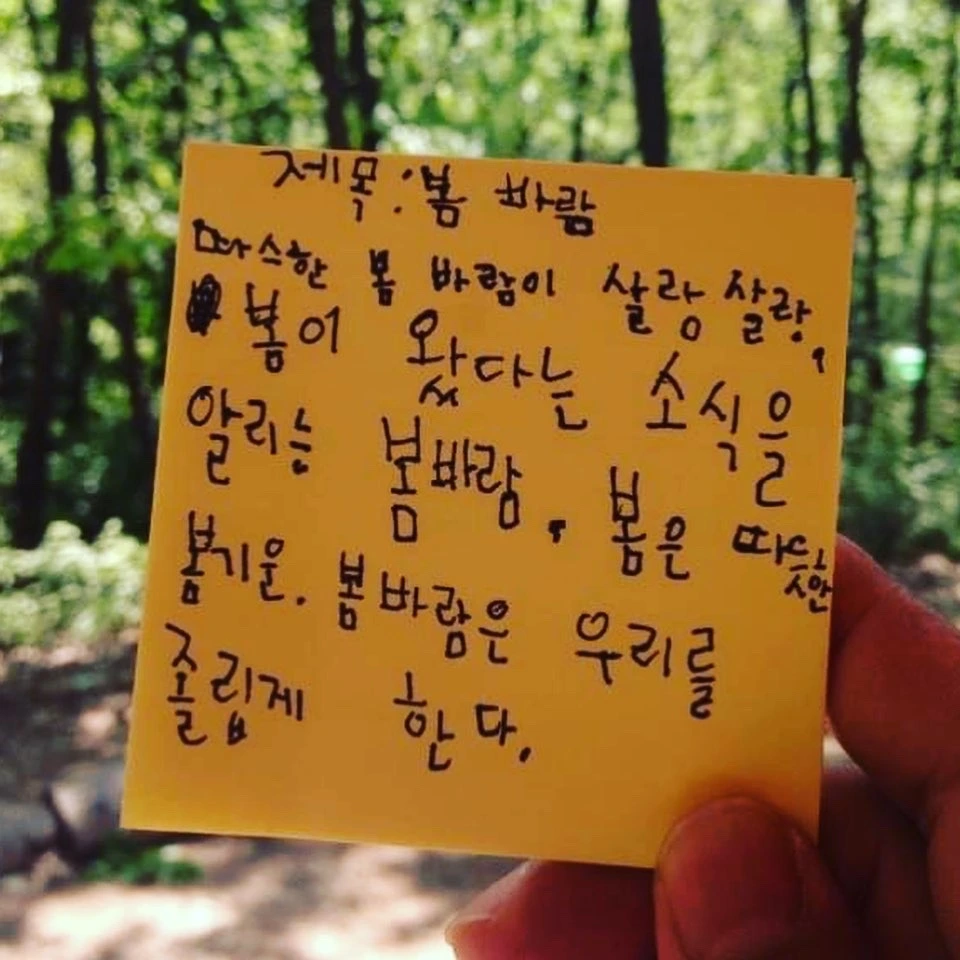 제목:봄 바람
따스한 봄 바람이 살랑 살랑,
봄이 왔다는 소식을
알리는 봄바람. 봄은 따뜻한
봄기운. 봄바람은 우리를
졸립게 한다.